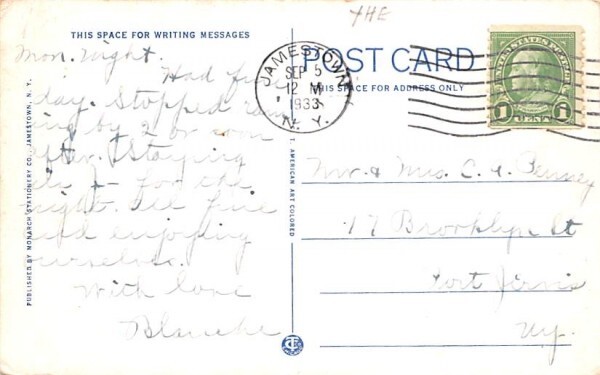 THE
THIS SPACE FOR WRITING MESSAGES
POST CARD
THIS SPACE FOR ADDRESS ONLY
JAMESTOWN
SEP 5
12 M
1933
N. Y.
UNITED STATES POSTAGE
1 CENT 1
Mon. Night.
Had fine
day. Stopped rain
ing by 2 or soon
after. Staying
for the
night. All fine
and enjoying
ourselves.
With love
Blanche
Mr. & Mrs. C. A. Penney
17 Brooklyn St
Port Jervis
N.y.
PUBLISHED BY MONARCH STATIONERY CO., JAMESTOWN, N. Y.
C. T. AMERICAN ART COLORED